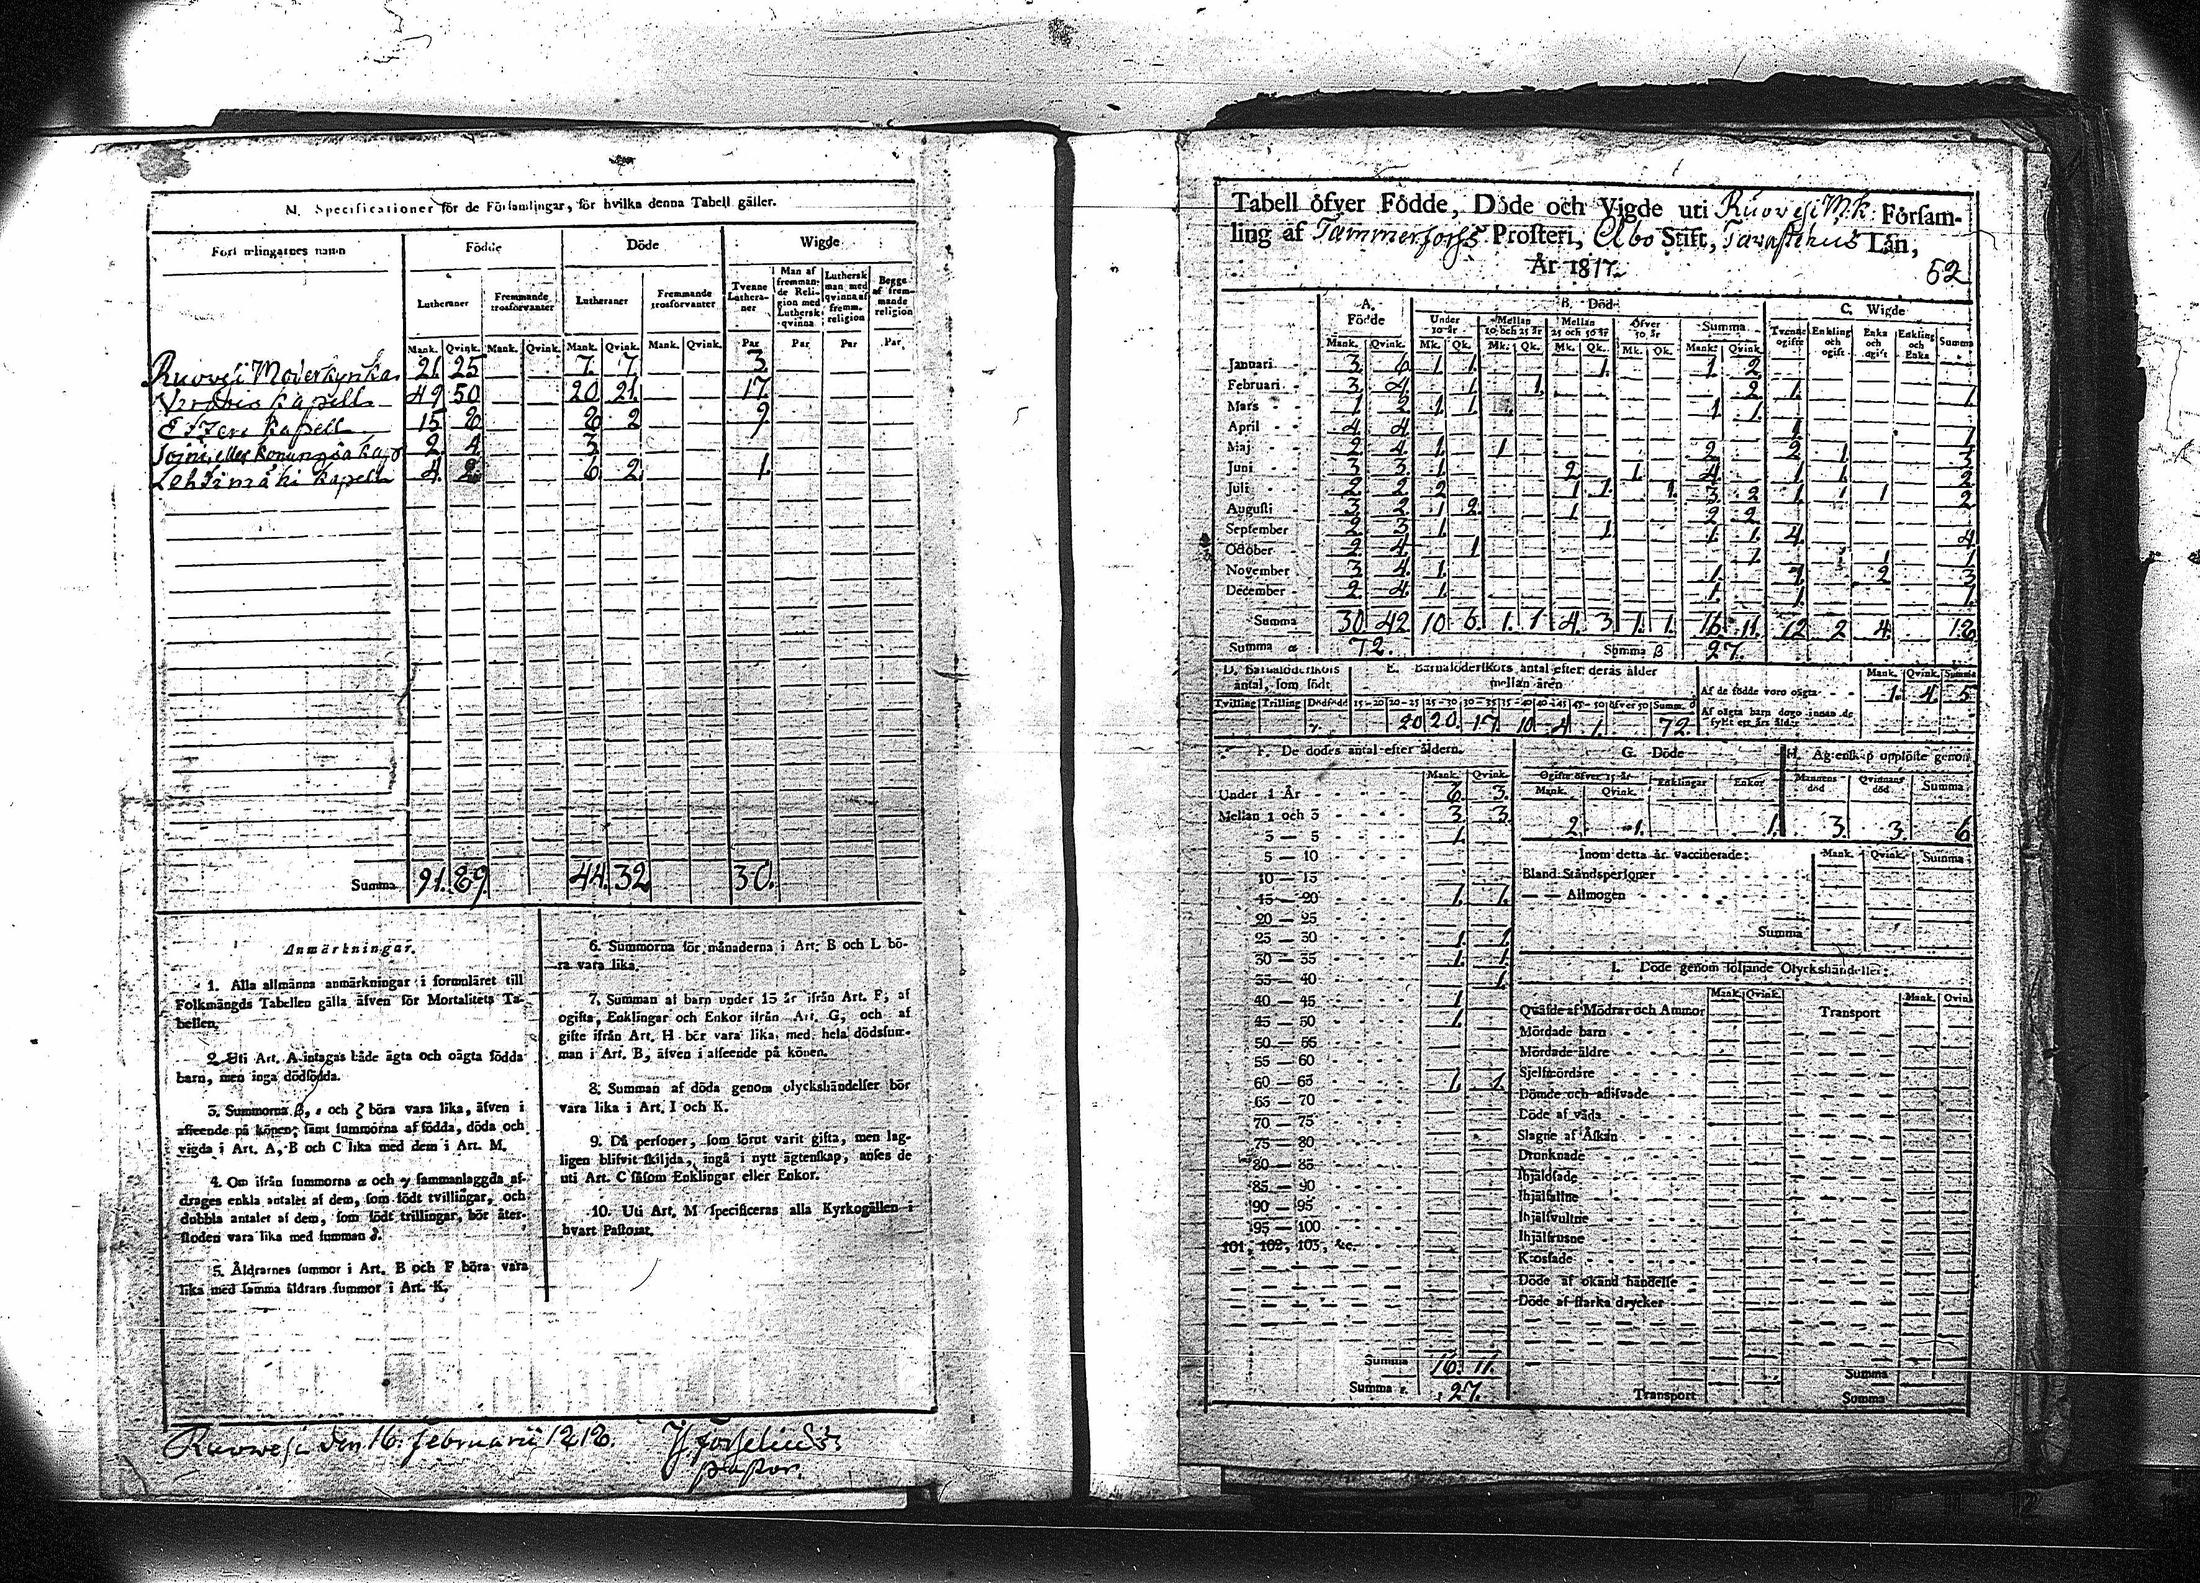 M. Specificationer för de Församlingar, för hvilka denna Tabell gäller.
Församlingarnes namn Födde Döde Wigde
Lutheraner Fremmande trosförvanter Lutheraner Fremmande trosförvanter Tvenne Lutheraner Man af fremmande Religion med Luthersk qvinna Luthersk man med qvinna af fremm. religion Begge af fremmande religion
Mank. Qvink. Mank. Qvink. Mank. Qvink. Mank. Qvink. Par Par Par Par
Ruovesi Moderkyrka 21. 25 7. 7. 3.
Virdois Kapell 49 50 20 21. 17.
Etzeri Kapell 15 8 8 2 9.
2. 4 3
Lehtimäki Kapell 4. 2. 6 2. 1.
Summa 91. 89. 44. 32 30.
Anmärkningar.
1. Alla allmänna anmärkningar i formuläret till
Folkmängds Tabellen gälla äfven för Mortalitets Ta-
bellen.
2. Uti Art. A intagas både ägta och oägta födda
barn, men inga dödfödda.
3. Summorna β, ε och ζ böra vara lika, äfven i
afseende på könen; samt summorna af födda, döda och
vigda i Art. A, B och C lika med dem i Art. M.
4. Om ifrån summorna α och γ sammanlaggda af-
drages enkla antalet af dem, som födt tvillingar, och
dubbla antalet af dem, som födt trillingar, bör åter-
stoden vara lika med summan δ.
5. Åldrarnes summor i Art. B och F böra vara
lika med samma åldrars summor i Art. K.
6. Summorna för månaderna i Art. B och L bö-
ra vara lika.
7. Summan af barn under 15 år ifrån Art. F, af
ogifta, Enklingar och Enkor ifrån Art. G, och af
gifte ifrån Art. H bör vara lika med hela dödssum-
man i Art. B, äfven i afseende på könen.
8. Summan af döda genom olyckshändelser bör
vara lika i Art. I och K.
9. Då personer, som förut varit gifta, men lag-
ligen blifvit skiljda, ingå i nytt ägtenskap, anses de
uti Art. C såsom Enklingar eller Enkor.
10. Uti Art. M specificeras alla Kyrkogällen i
hvart Pastorat.
Ruovesi den 16. Februarii 1818.
Pastor.
Tabell öfver Födde, Döde och Vigde uti Ruovesi M.k. Församling
ling af Tammerfors Prosteri, Åbo Stift, Tavastehus Län,
År 1817.
52
A. Födde B. Döde C. Wigde
Under 10 år Mellan 10 och 25 år Mellan 25 och 50 år Öfver 50 år Summa Tvenne ogifte Enkling och ogift Enka och ogift Enkling och Enka Summa
Mank. Qvink. Mk. Qk. Mk. Qk. Mk. Qk. Mk. Qk. Mank. Qvink
Januari 3. 6 1. 1. 1. 1. 2.
Februari 3. 4 1. 1. 2 1. 1
Mars 1. 2 1 1. 1 1.
April 4 4 1 1
Maj 2 4 1. 1 2
Juni 3 3 1. 2 1. 4
Juli 2 2 2 1 1. 1. 3. 2
Augusti 3 2 1 2. 1 2 2
September 2 3 1. 1. 1 1. 4 4
October 2 4 1 1. 1 1
November 3 4 1. 1. 2 3
December 2 4 1. 1. 1. 1.
Summa 30. 42 10 6. 1. 1 4. 3 1. 1. 16 11. 12 2 4. 18.
Summa α 72. Summa β 27.
D. Barnaföderskors antal, som födt E. Barnaföderskors antal efter deras ålder mellan åren
Mank. Qvink. Summa
Af de födde voro oägta 1. 4. 5
Af oägta barn dogo innan de fyllt ett års ålder
Tvilling Trilling Dödfödd 15-20 20-25 25-30 30-35 35-40 40-45 45-50 öfver 50 Summa δ
20 20. 17 10 4 1. 72.
F. De dödes antal efter åldern. G. Döde H. Ägtenskap upplöste genom
Mank. Qvink. Ogifte öfver 15 år Enklingar Enkor Mannens död Qvinnans död Summa
Mank. Qvink.
2. 1. 1. 3. 3. 6
Under 1 År 6. 3.
Mellan 1 och 3 3 3
3 — 5 1.
5 — 10
10 — 15
15 — 20 1. 1.
20 — 25
25 — 30 1. 1
30 — 35 1. 1.
35 — 40 1.
40 — 45 1
45 — 50 1.
50 — 55
55 — 60
60 — 65 1. 1.
65 — 70
70 — 75
75 — 80
80 — 85
85 — 90
90 — 95
95 — 100
101, 102, 103, &c.
Summa 16. 11.
Summa ε. 27.
Inom detta år vaccinerade: Mank. Qvink. Summa
Bland Ståndspersoner
— — Allmogen
Summa
I. Döde genom följande Olyckshändelser:
Mank. Qvink. Mank. Qvink
Qväfde af Mödrar och Ammor Transport
Mördade barn
Mördade äldre
Sjelfmördare
Dömde och aflifvade
Döde af våda
Slagne af Åskan
Drunknade
Ihjälfrusne
Kosfade
Döde af okänd händelse
Döde af starka drycker
Summa
Transport Summa